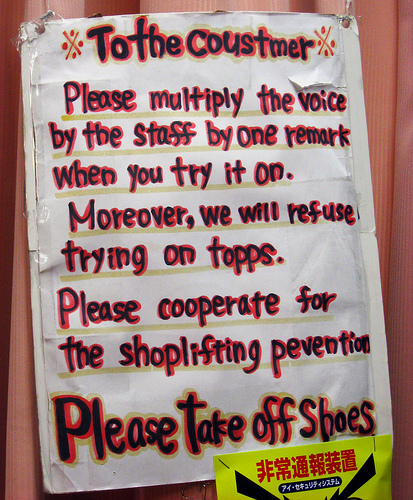 ※ To the Coustmer ※
Please multiply the voice
by the staff by one remark
when you try it on.
Moreover, we will refuse
trying on topps.
Please cooperate for
the shoplifting pevention
Please take off Shoes
非常通報装置
アイ・セキュリティシステム